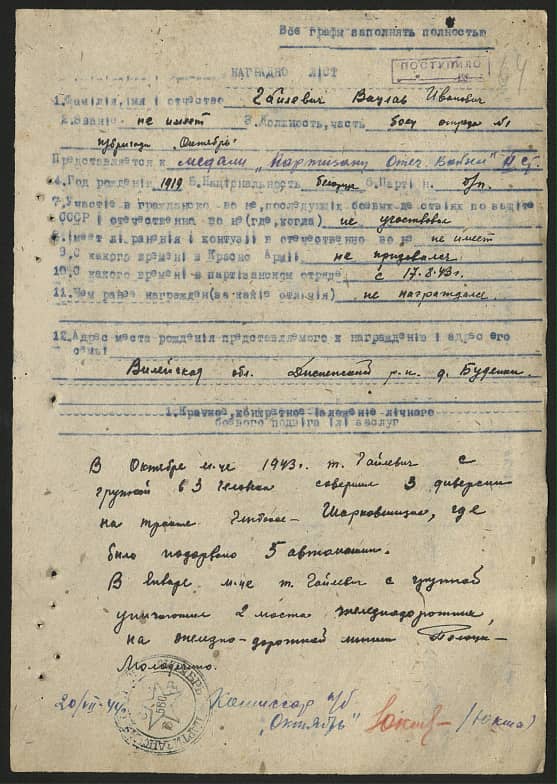 Все графы заполнять полностью
ПОСТУПИЛО
64
НАГРАДНО ЛІСТ
1.Фамілія,імя і отчество Гайлевич Вацлав Иванович
2.Звание не имеет 3.Должность,часть боец отряда №1
п/бригады „Октябрь"
Представляется к медали „Партизану Отеч. Войны" II ст.
4.Год рождения 1919 5.Національность белорус 6.Парті н. б/п.
7.Участіе в гражданско во не,последующих боевых де ствіях по защіте
СССР і отечественно во не(где,когда) не участвовал
8.Імеет лі ранения і контузіі в отечественно во не не имеет
9.С какого времені в Красно Арміі не призывался
10.С какого времені в партізанском отряде с 17.8.43г.
11.Чем ранее награжден(за какія отлічія) не награждался.
12.Адрес места рожденія представляемого к награжденію і адрес его
семьі
Вилейская обл. Дисненский р-н д. Буденки.
1.Краткое,конкретное ізложеніе лічного
боевого подвіга ілі заслуг
В Октябре м-це 1943г. т. Гайлевич с
группой в 3 человека совершил 3 диверсии
на тракте Глубокое - Шарковщизна, где
было подорвано 5 автомашин.
В январе м-це т. Гайлевич с группой
уничтожил 2 моста железнодорожных,
на железно-дорожной линии Полоцк-
Молодечно.
20/VII-44г. Комиссар п/б
„Октябрь"